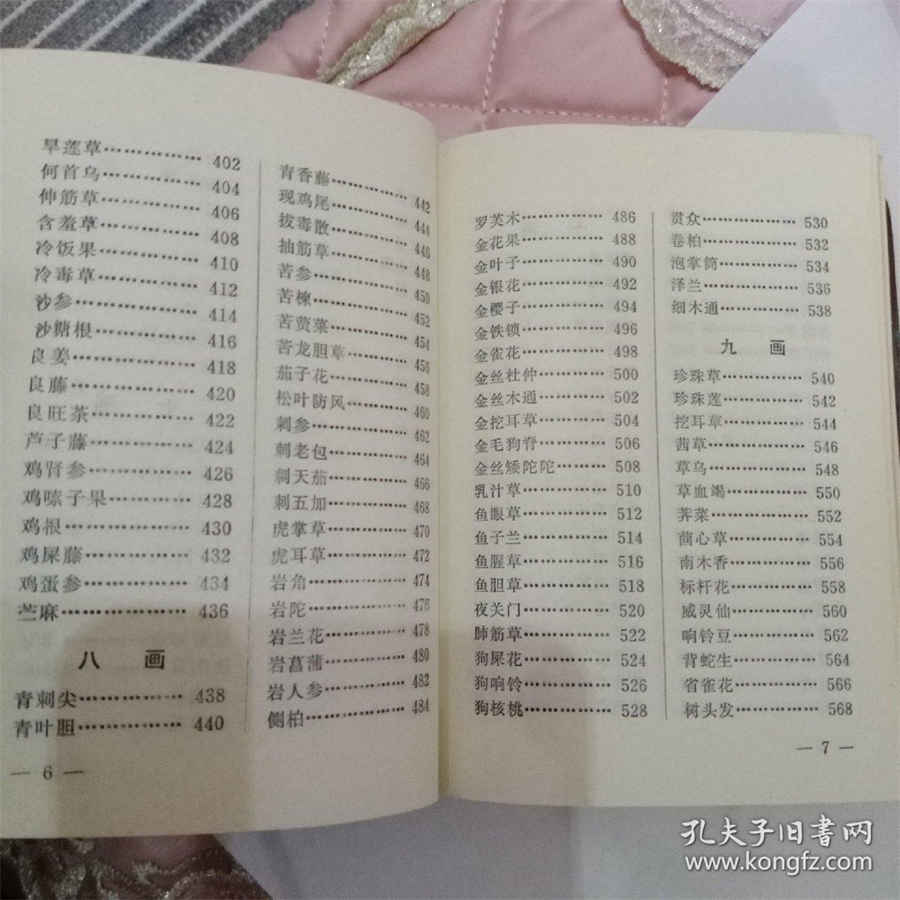 旱莲草……………… 402
何首乌……………… 404
伸筋草……………… 406
含羞草……………… 408
冷饭果……………… 410
冷毒草……………… 412
沙参……………… 414
沙糖根……………… 416
良姜……………… 418
良藤……………… 420
良旺茶……………… 422
芦子藤……………… 424
鸡肾参……………… 426
鸡嗉子果……………… 428
鸡根……………… 430
鸡屎藤……………… 432
鸡蛋参……………… 434
苎麻……………… 436
八 画
青刺尖……………… 438
青叶胆……………… 440
— 6 —
青香藤……………… 442
现鸡尾……………… 444
拔毒散……………… 446
抽筋草……………… 448
苦参……………… 450
苦楝……………… 452
苦荬菜……………… 454
苦龙胆草……………… 456
茄子花……………… 458
松叶防风……………… 460
刺参……………… 462
刺老包……………… 464
刺天茄……………… 466
刺五加……………… 468
虎掌草……………… 470
虎耳草……………… 472
岩角……………… 474
岩陀……………… 476
岩兰花……………… 478
岩菖蒲……………… 480
岩人参……………… 482
侧柏……………… 484
罗芙木……………… 486
金花果……………… 488
金叶子……………… 490
金银花……………… 492
金樱子……………… 494
金铁锁……………… 496
金雀花……………… 498
金丝杜仲……………… 500
金丝木通……………… 502
金挖耳草……………… 504
金毛狗脊……………… 506
金丝矮陀陀……………… 508
乳汁草……………… 510
鱼眼草……………… 512
鱼子兰……………… 514
鱼腥草……………… 516
鱼胆草……………… 518
夜关门……………… 520
肺筋草……………… 522
狗屎花……………… 524
狗响铃……………… 526
狗核桃……………… 528
贯众……………… 530
卷柏……………… 532
泡掌筒……………… 534
泽兰……………… 536
细木通……………… 538
九 画
珍珠草……………… 540
珍珠莲……………… 542
挖耳草……………… 544
茜草……………… 546
草乌……………… 548
草血竭……………… 550
荠菜……………… 552
茴心草……………… 554
南木香……………… 556
标杆花……………… 558
威灵仙……………… 560
响铃豆……………… 562
背蛇生……………… 564
省雀花……………… 566
树头发……………… 568
— 7 —
孔夫子旧书网
www.kongfz.com